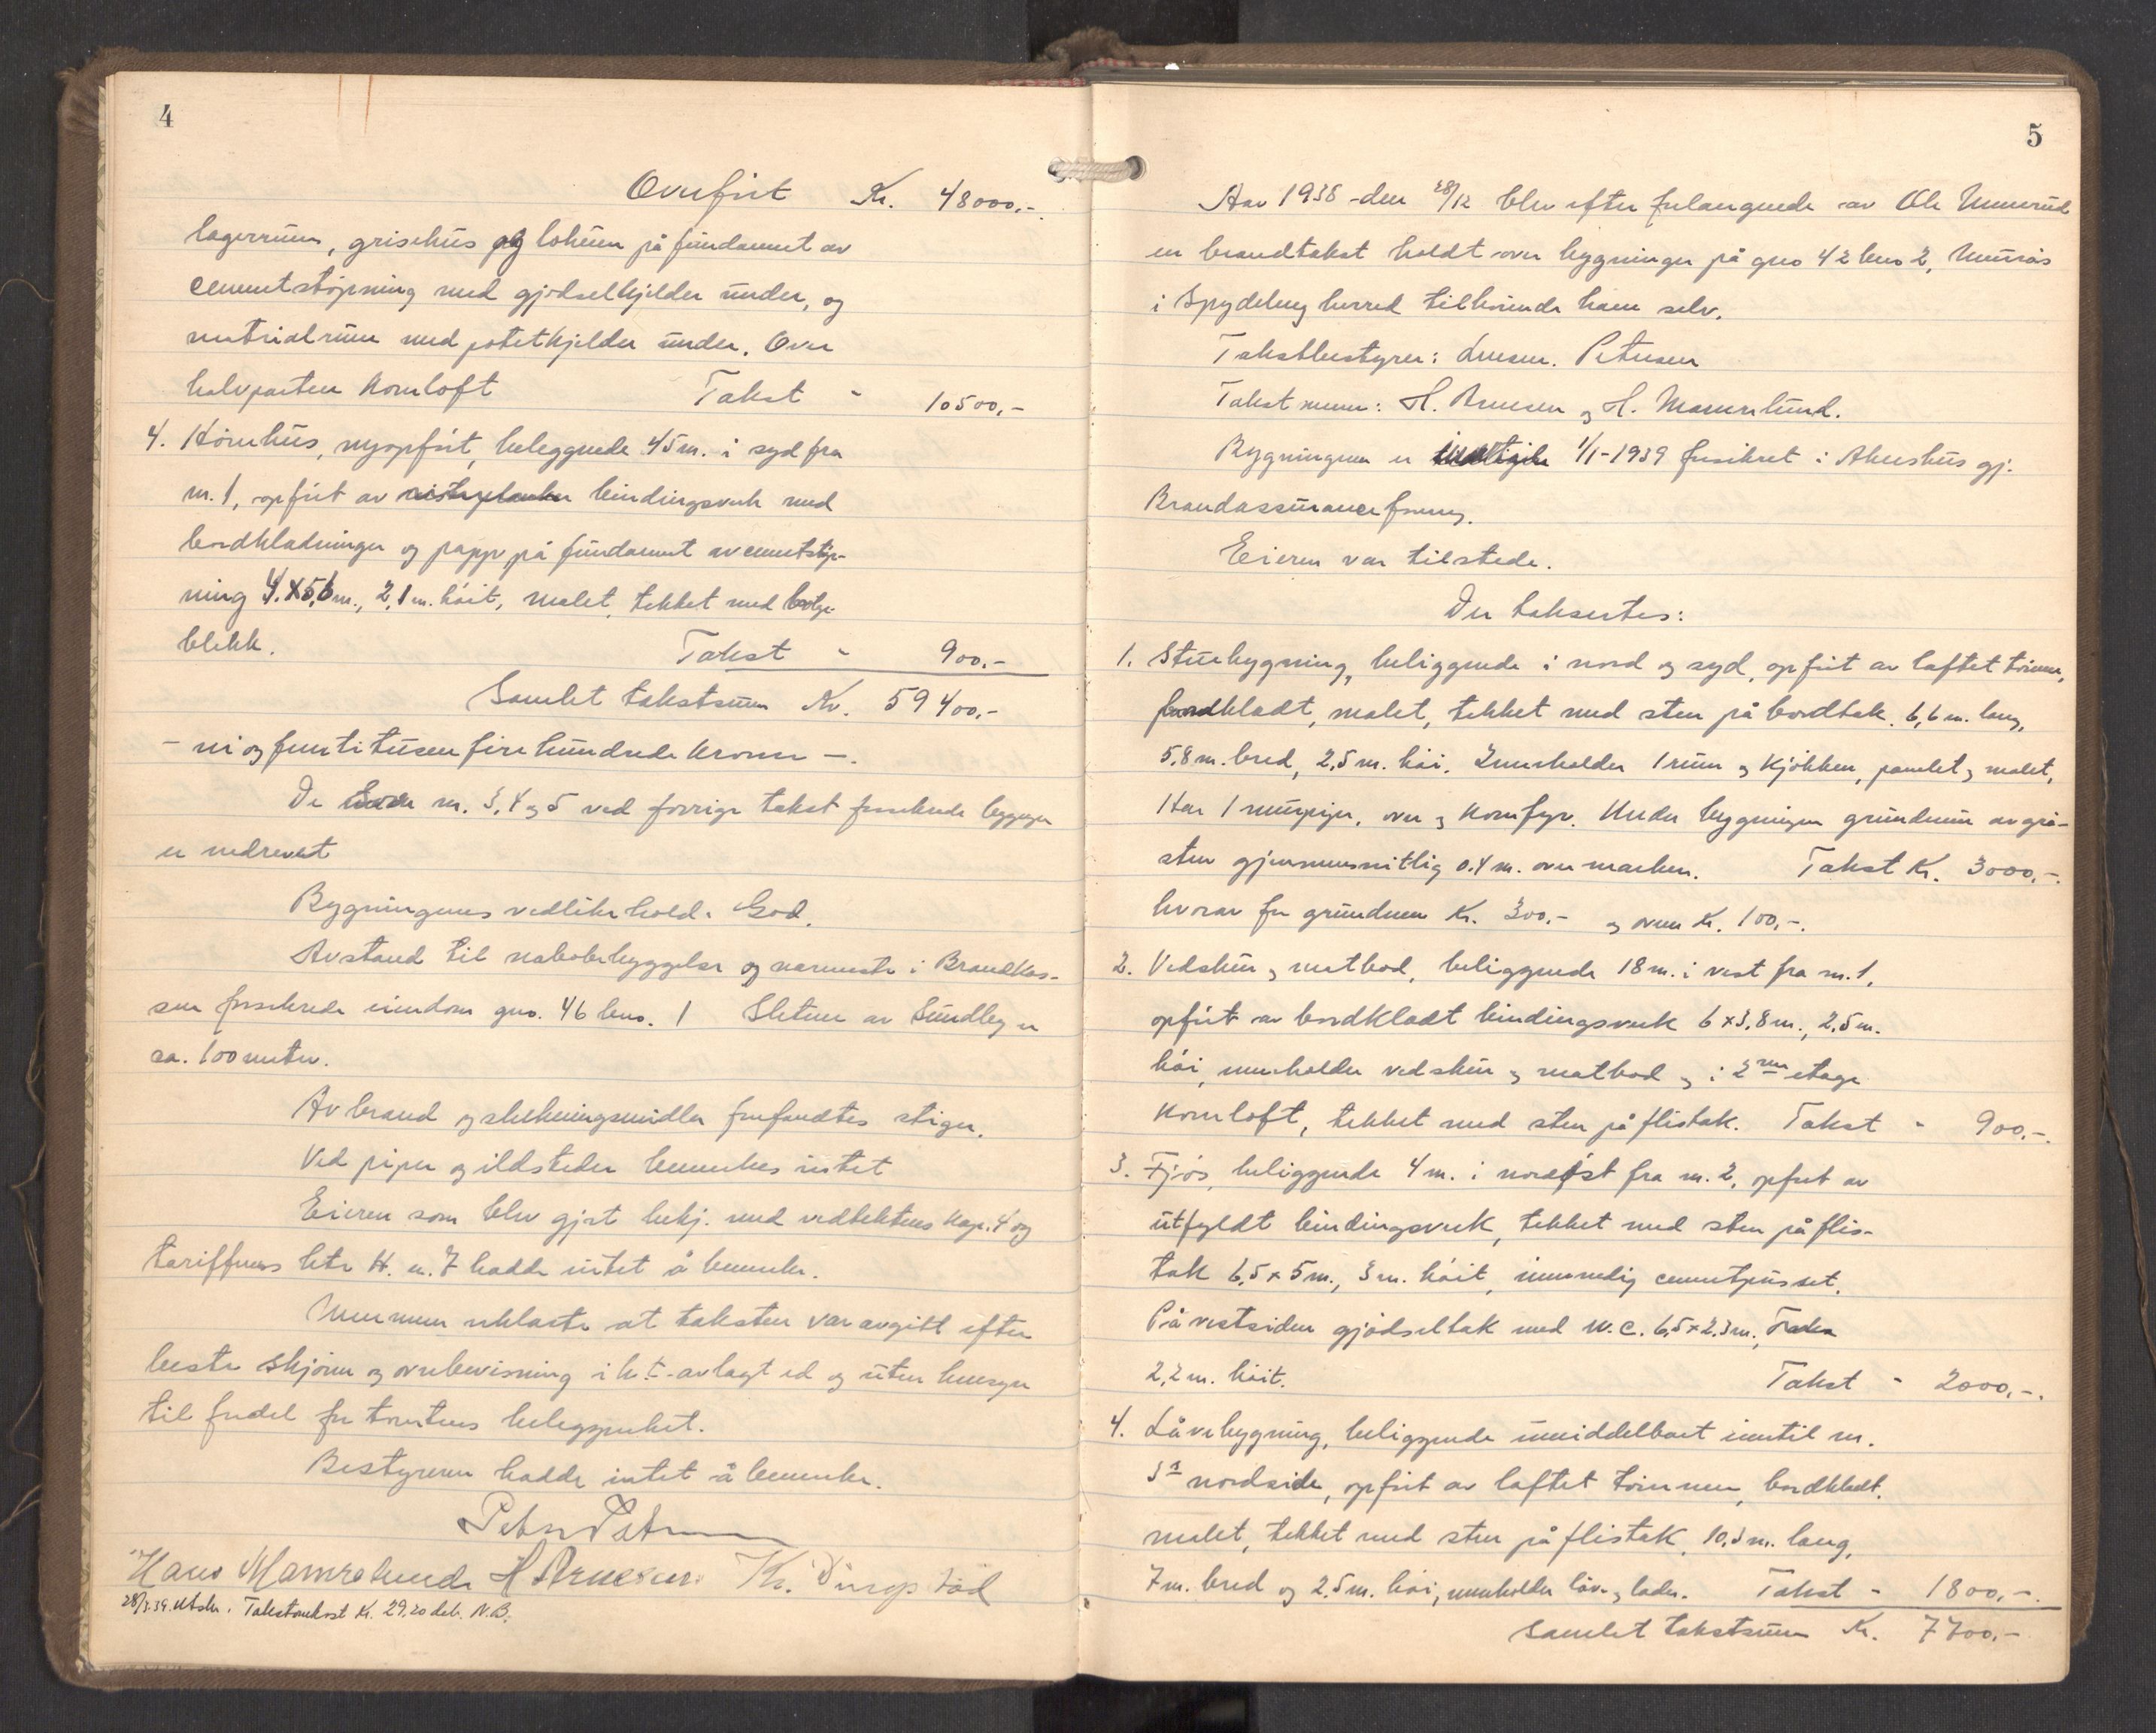 4
Overført Kr. 48000.-
lagerrum, grisehus og lokum på fundament av
cementstøpning med gjødselkjelder under, og
matrialrum med potetkjelder under. Over
halvparten kornloft Takst " 10500,-
4. Hönsehus, nyopført, beleggende 45 m. i syd fra
nr. 1, opført av bindingsverk med
bordkledninger og papp, på fundament av cementstøp-
ning 4 x 5,6 m., 2,1 m. höit, malet, tekket med bølge-
blekk. Takst " 900.-
Samlet takstsum Kr. 59400.-
- ni og femtitusen fire hundrede kroner -.
De nr. 3, 4 og 5 ved forrige takst forsikrede bygninger
er nedrevet
Bygningenes vedlikehold: God.
Avstand til nabobebyggelse og nærmeste i Brandkas-
sen forsikrede eiendom gno. 46 bno. 1 Sletner av Sundby er
ca. 100 meter.
Av brand og slukningsmidler forefandtes stiger.
Ved piper og ildsteder bemerkes intet
Eieren som blev gjort bekj. med vedtektenes kap. 4 og
tariffens litr H. n. 7 hadde intet å bemerke.
Mennene erklærte at taksten var avgitt efter
beste skjönn og overbevisning i h. t. avlagt ed og uten hensyn
til fordel for tomtens beleggenhet.
Bestyreren hadde intet å bemerke.
Peter Petersen
Hans Mamrelund H Arnesen Kr.
28/3.39. Utskr. Takstomkost Kr. 29.20 deb. N.B.
5
Aar 1938 den 28/12 blev efter forlangende av Ole Unnerud
en brandtakst holdt over bygninger på gno 42 bno 2,
i Spydeberg herred tilhörende ham selv.
Takstbestyrer: Lensm. Petersen
Takstmenn: H. Arnesen og H. Mamrelund.
Bygningene er 1/1-1939 forsikret i Akershus gj.
Brandassuranceforening.
Eieren var tilstede.
Der taksertes:
1. Stuebygning, beliggende i nord og syd, opført av laftet tömmer,
bordkledt, malet, tekket med sten på bordtak. 6,6 m. lang,
5.8 m. bred, 2,5 m. höi. Innerholder 1 rum og kjökken, panelet og malet,
Har 1 murpipe, ovn og komfyr. Under bygningen grundmur av grå-
sten gjennemsnitlig 0.4 m. over marken. Takst Kr. 3000.-
hvorav for grundmur Kr. 300.- og ovnen Kr. 100,-.
2. Vedskur og matbod, beliggende 18 m. i vest fra nr. 1,
opført av bordkledt bindingsverk 6 x 3,8 m., 2,5 m.
höi, innerholder vedskur og matbod og i 2nen etage
kornloft, tekket med sten på flistak. Takst " 900.-.
3. Fjös, beliggende 4 m. i nordöst fra nr. 2, opført av
utfyldt bindingsverk, tekket med sten på flis-
tak 6,5 x 5 m., 3 m. höit, innvendig cementpusset.
På vestsiden gjödseltak med W.C. 6,5 x 2.3 m.,
2,2 m. höit. Takst " 2000,-.
4. Låvebygning, beliggende umiddelbart inntil nr.
3s nordside, opført av laftet tömmer, bordkledt.
malet, tekket med sten på flistak, 10,3 m. lang,
7 m. bred og 2.5 m. höi, innerholder låve og lader. Takst " 1800,-.
Samlet takstsum Kr. 7700,-